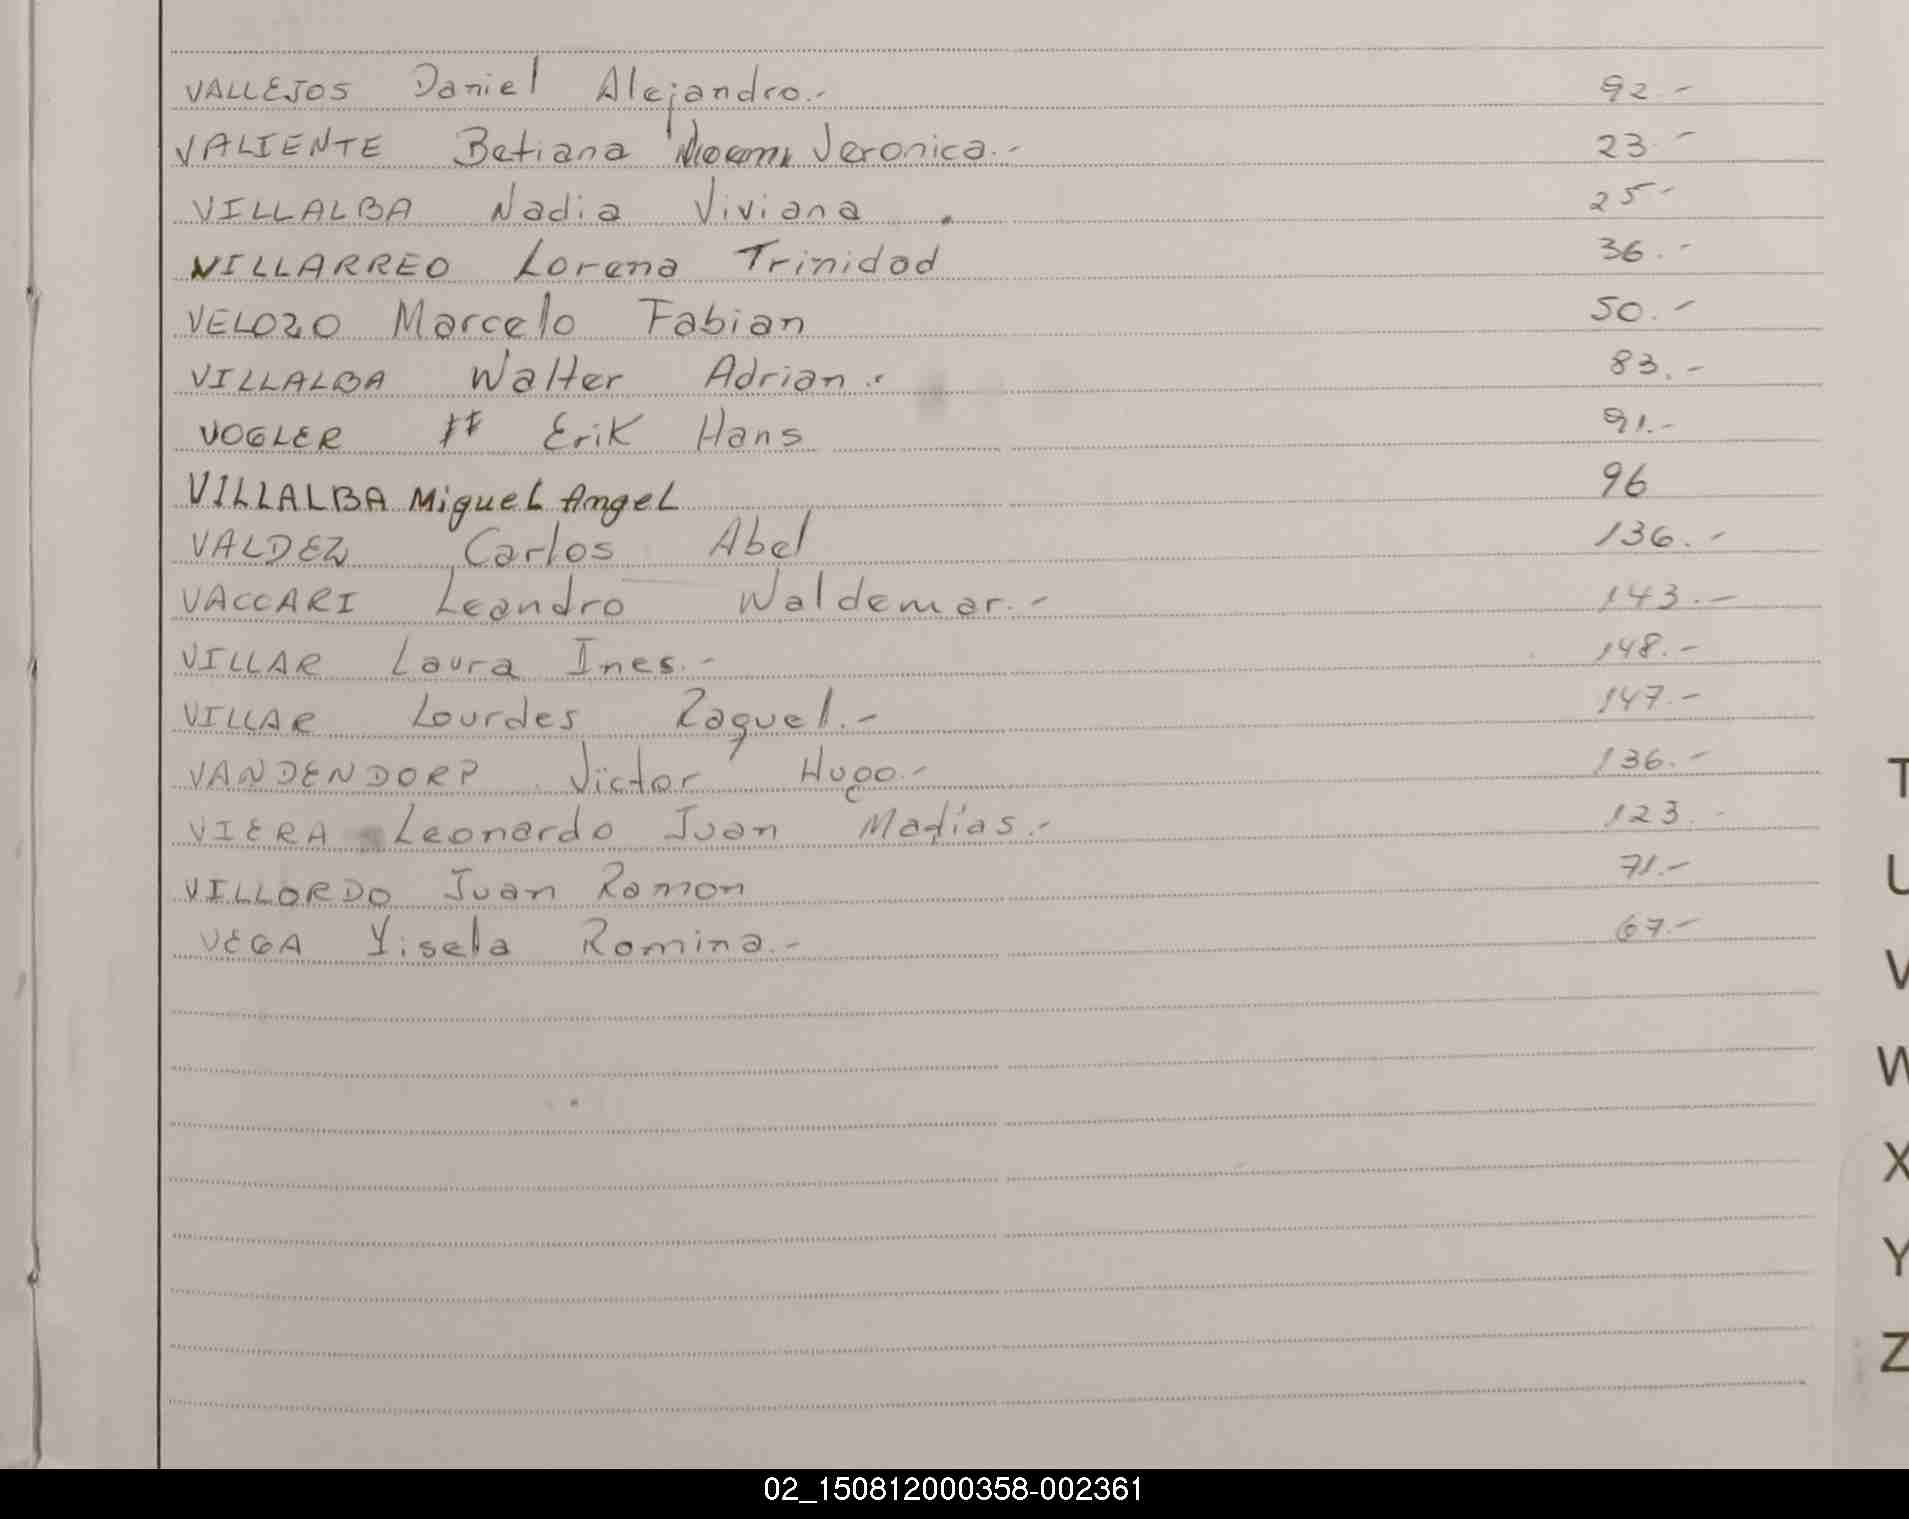 VALLEJOS Daniel Alejandro.- 92.-
VALIENTE Betiana Noemi Veronica.- 23.-
VILLALBA Nadia Viviana 25-
VILLARREO Lorena Trinidad 36.-
VELOZO Marcelo Fabian 50.-
VILLALBA Walter Adrian.- 83.-
VOGLER Erik Hans 91.-
VILLALBA Miguel Angel 96
VALDEZ Carlos Abel 136.-
VACCARI Leandro Waldemar.- 143.-
VILLAR Laura Ines.- 148.-
VILLAR Lourdes Raquel.- 147.-
VANDENDORP Victor Hugo.- 136.-
VIERA Leonardo Juan Matias.- 123.-
VILLORDO Juan Ramon 71.-
VEGA Yisela Romina.- 67.-
T
U
V
W
X
Y
Z
02_150812000358-002361